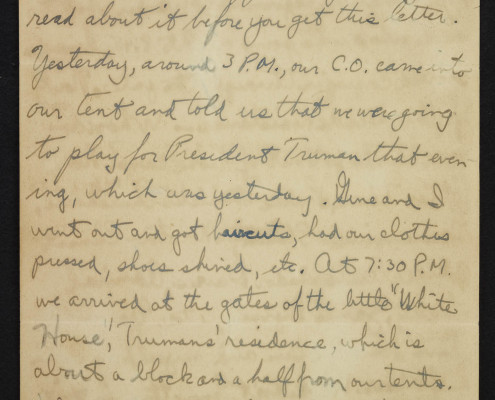 read about it before you get this letter.
Yesterday, around 3 P.M., our C.O. came into
our tent and told us that we were going
to play for President Truman that even-
ing, which was yesterday. Gene and I
went out and got haircuts, had our clothes
pressed, shoes shined, etc. At 7:30 P.M.
we arrived at the gates of the little "White
House", Trumans' residence, which is
about a block and a half from our tents.